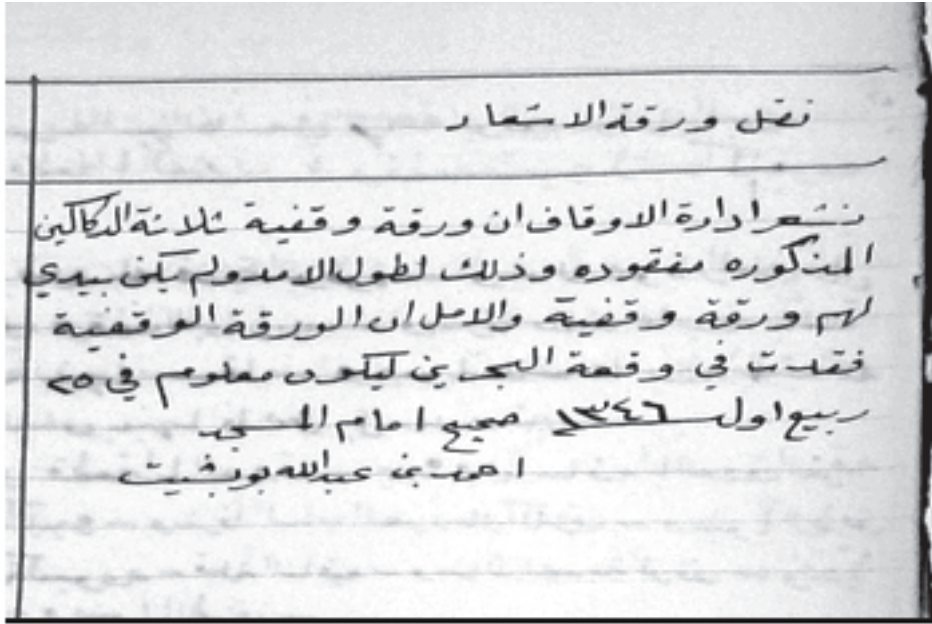 نقل ورقة الاشعار
نشعر ادارة الاوقاف ان ورقة وقفية ثلاثة الدكاكين
المذكوره مفقوده وذلك لطول الامد ولم يكن بيدي
لهم ورقة وقفية والامل ان الورقة الوقفية
فقدت في وقعة البحرين ليكون معلوم في ٢٥
ربيع اول ١٣٤٦ صحيح امام المسجد
احمد بن عبدالله بوبشيت